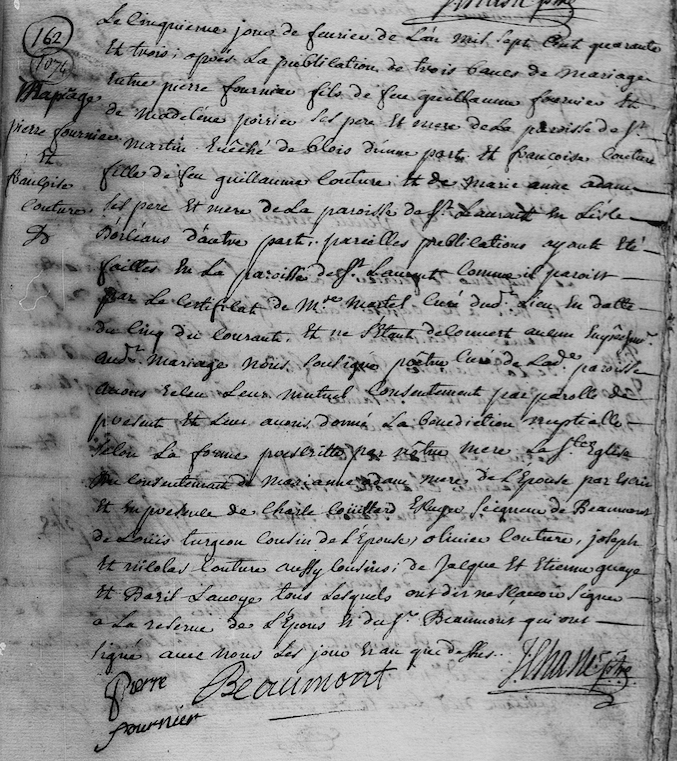 162
1074
Mariage
pierre fournier
et
françoise
couture
Le Cinquieme jour de fevrier de L'an mil sept Cent quarante
Et trois; aprés La publication de trois bancs de mariage
Entre pierre fournier fils de feu guillaume fournier Et
de Madelene poirier ses pere Et mere de La paroisse de St
Martin Evêché de blois d'une part, Et francoise Couture
fille de feu guillaume Couture Et de Marie anne adam
ses pere Et mere de La paroisse de St. Laurant En L'isle
D'orleans d'autre part, pareilles publications ayant Eté
faittes En La paroisse de St. Laurent Comme il paroist
par Le Certificat de Mre Martel Curé dud. Lieu En datte
du Cinq du Courant, Et ne s'Etant decouvert aucun
aud. mariage Nous soussigné prêtre Curé de Lad. paroisse
avons recu Leur mutuel Consentement par parolle de
present Et Leur avons donné La benediction nuptialle
selon La forme prescritte par nôtre mere La Ste Eglise
du consentement de marianne adam mere de L'Epouse par Escrit
Et En presence de Charle Couillard Ecuyer Seigneur de Beaumont
de Louis turgeon Cousin de L'Epouse, olivier Couture, joseph
Et nicolas Couture aussy Cousins; de Jacque Et Etienne
Et Bazil Lavoye tous Lesquels ont dit ne sçavoir signer
a La reserve de L'Epous Et du Sr. Beaumont qui ont
signé avec nous Les jour Et an que dessus.
pierre
fournier
Beaumont